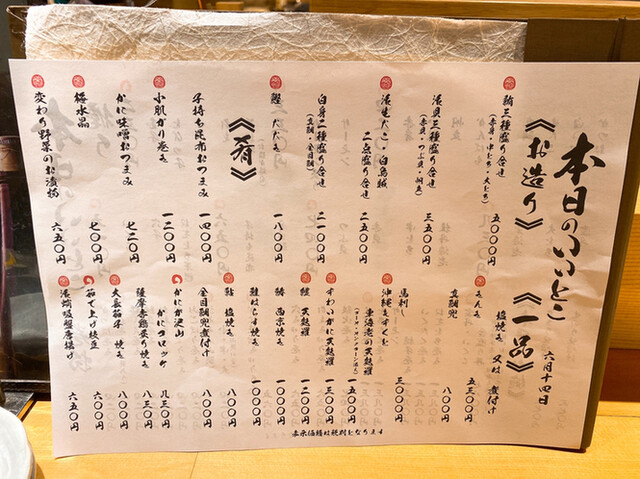 本日のいいとこ
六月十四日
《お造り》
鮪三種盛り合せ 五〇〇〇円
(赤身・中とろ・大とろ)
活貝三種盛り合せ 三五〇〇円
(赤貝・つぶ貝・帆立)
活生だこ・白烏賊
二点盛り合せ 二五〇〇円
白身二種盛り合せ 二一〇〇円
(真鯛・金目鯛)
鰹 たたき 一八〇〇円
《肴》
子持ち昆布おつまみ 一四〇〇円
小肌がり巻き 一二〇〇円
かに味噌おつまみ 七二〇円
梅水晶 七〇〇円
変わり野菜のお漬物 六五〇円
《一品》
きんき 塩焼き 又は 煮付け 五五三〇円
真鯛兜 八〇〇円
馬刺し 三〇〇〇円
沖縄もずく
車海老の天麩羅 一五〇〇円
ずわいかに天麩羅 一三〇〇円
鱚 天麩羅 一二〇〇円
西京焼き 一〇〇〇円
鮭はらす焼き 一〇〇〇円
鮎 塩焼き 八〇〇円
金目鯛兜煮付け 八〇〇円
かにか沢山
かにクロッケ 八三〇円
薩摩赤鶏炙り焼き 八三〇円
大長茄子 焼き 八〇〇円
茹で上げ枝豆 六〇〇円
活蛸吸盤唐揚げ 六五〇円
表示価格は税別となります